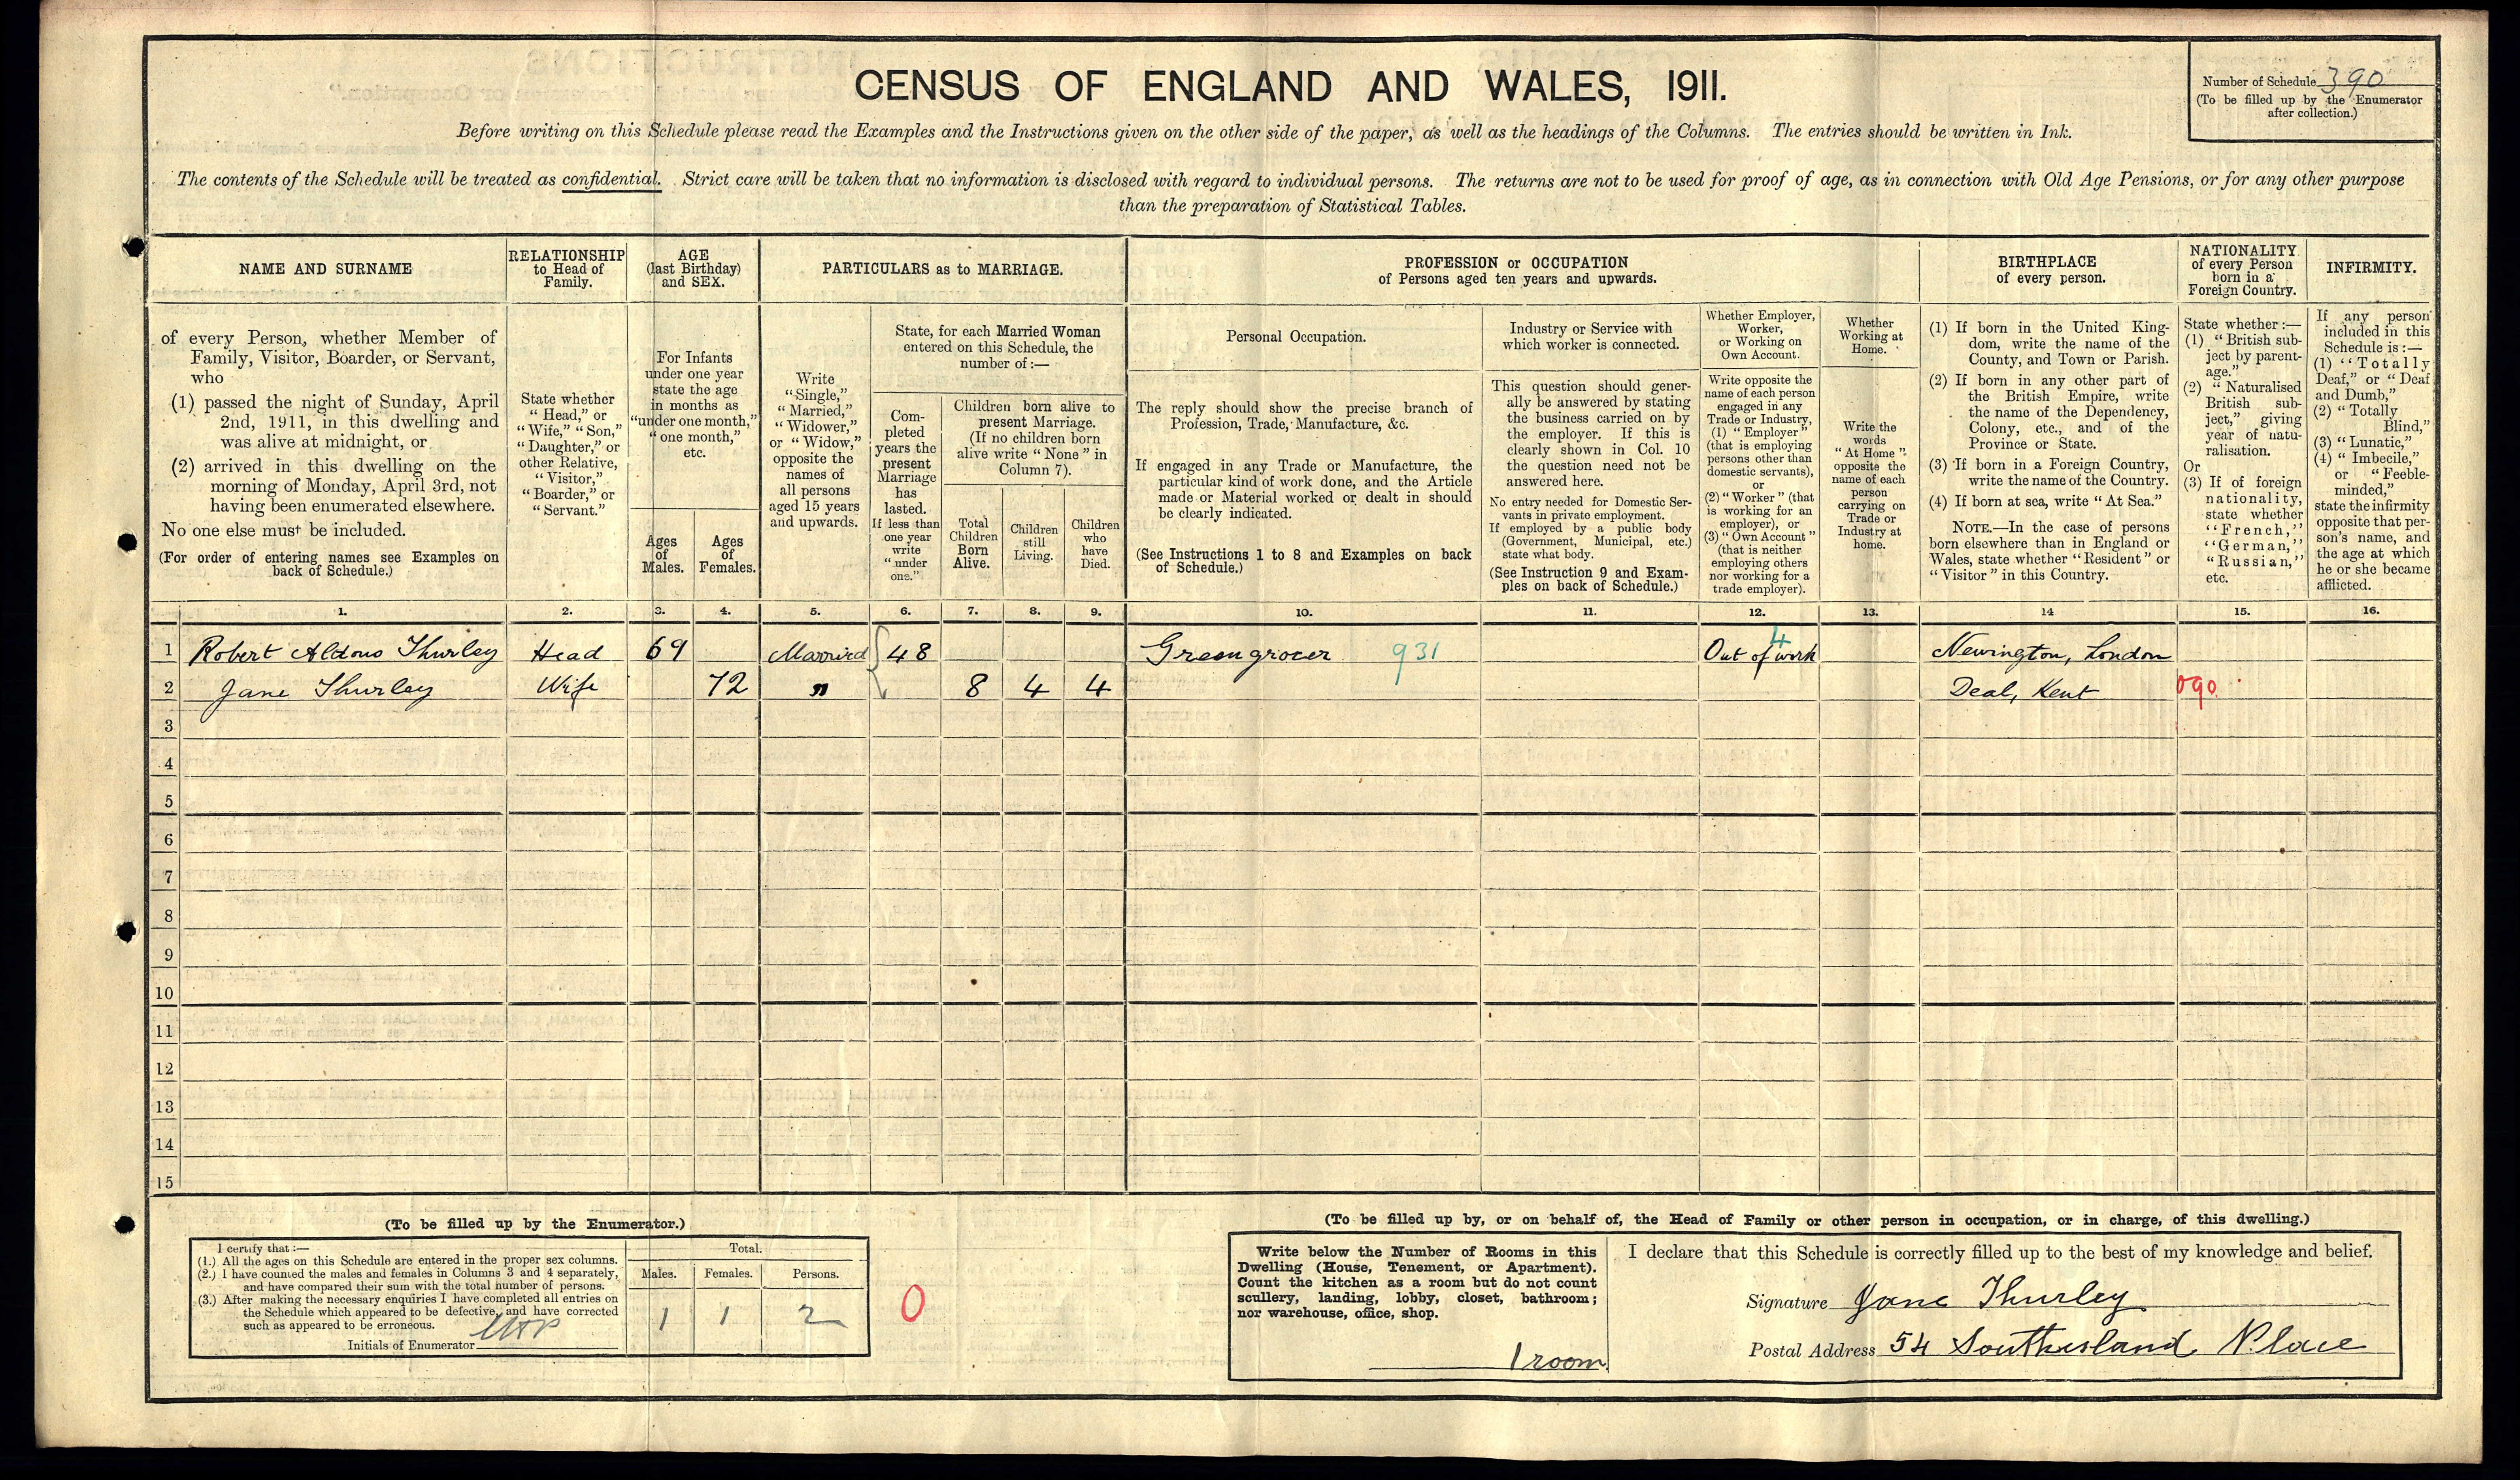 CENSUS OF ENGLAND AND WALES, 1911.
Number of Schedule 390
(To be filled up by the Enumerator
after collection.)
Before writing on this Schedule please read the Examples and the Instructions given on the other side of the paper, as well as the headings of the Columns. The entries should be written in Ink.
The contents of the Schedule will be treated as confidential. Strict care will be taken that no information is disclosed with regard to individual persons. The returns are not to be used for proof of age, as in connection with Old Age Pensions, or for any other purpose
than the preparation of Statistical Tables.
NAME AND SURNAME
of every Person, whether Member of
Family, Visitor, Boarder, or Servant,
who
(1) passed the night of Sunday, April
2nd, 1911, in this dwelling and
was alive at midnight, or
(2) arrived in this dwelling on the
morning of Monday, April 3rd, not
having been enumerated elsewhere.
No one else must be included.
(For order of entering names see Examples on
back of Schedule.)
RELATIONSHIP
to Head of
Family.
State whether
"Head," or
"Wife," "Son,"
"Daughter," or
other Relative,
"Visitor,"
"Boarder," or
"Servant."
AGE
(last Birthday)
and SEX.
For Infants
under one year
state the age
in months as
"under one month,"
"one month,"
etc.
Ages
of
Males.
Ages
of
Females.
PARTICULARS as to MARRIAGE.
Write
"Single,"
"Married,"
"Widower,"
or "Widow,"
opposite the
names of
all persons
aged 15 years
and upwards.
State, for each Married Woman
entered on this Schedule, the
number of:—
Com-
pleted
years the
present
Marriage
has
lasted.
If less than
one year
write
"under
one."
Children born alive to
present Marriage.
(If no children born
alive write "None" in
Column 7).
Total
Children
Born
Alive.
Children
still
Living.
Children
who
have
Died.
PROFESSION or OCCUPATION
of Persons aged ten years and upwards.
Personal Occupation.
The reply should show the precise branch of
Profession, Trade, Manufacture, &c.
If engaged in any Trade or Manufacture, the
particular kind of work done, and the Article
made or Material worked or dealt in should
be clearly indicated.
(See Instructions 1 to 8 and Examples on back
of Schedule.)
Industry or Service with
which worker is connected.
This question should gener-
ally be answered by stating
the business carried on by
the employer. If this is
clearly shown in Col. 10
the question need not be
answered here.
No entry needed for Domestic Ser-
vants in private employment.
If employed by a public body
(Government, Municipal, etc.)
state what body.
(See Instruction 9 and Exam-
ples on back of Schedule.)
Whether Employer,
Worker,
or Working on
Own Account.
Write opposite the
name of each person
engaged in any
Trade or Industry,
(1) "Employer"
(that is employing
persons other than
domestic servants),
or
(2) "Worker" (that
is working for an
employer), or
(3) "Own Account"
(that is neither
employing others
nor working for a
trade employer).
Whether
Working at
Home.
Write the
words
"At Home"
opposite the
name of each
person
carrying on
Trade or
Industry at
home.
BIRTHPLACE
of every person.
(1) If born in the United King-
dom, write the name of the
County, and Town or Parish.
(2) If born in any other part of
the British Empire, write
the name of the Dependency,
Colony, etc., and of the
Province or State.
(3) If born in a Foreign Country,
write the name of the Country.
(4) If born at sea, write "At Sea."
NOTE.—In the case of persons
born elsewhere than in England or
Wales, state whether "Resident" or
"Visitor" in this Country.
NATIONALITY
of every Person
born in a
Foreign Country.
State whether:—
(1) "British sub-
ject by parent-
age."
(2) "Naturalised
British sub-
ject," giving
year of natu-
ralisation.
Or
(3) If of foreign
nationality,
state whether
"French,"
"German,"
"Russian,"
etc.
INFIRMITY.
If any person
included in this
Schedule is:—
(1) "Totally
Deaf," or "Deaf
and Dumb,"
(2) "Totally
Blind,"
(3) "Lunatic,"
(4) "Imbecile,"
or "Feeble-
minded,"
state the infirmity
opposite that per-
son's name, and
the age at which
he or she became
afflicted.
1. 2. 3. 4. 5. 6. 7. 8. 9. 10. 11. 12. 13. 14 15. 16.
1 Robert Aldous Thurley Head 69 Married 48 Greengrocer 931 Out of work 4 Newington, London
2 Jane Thurley Wife 72 " 8 4 4 Deal, Kent 090
3
4
5
6
7
8
9
10
11
12
13
14
15
(To be filled up by the Enumerator.)
I certify that:—
(1.) All the ages on this Schedule are entered in the proper sex columns.
(2.) I have counted the males and females in Columns 3 and 4 separately,
and have compared their sum with the total number of persons.
(3.) After making the necessary enquiries I have completed all entries on
the Schedule which appeared to be defective, and have corrected
such as appeared to be erroneous.
Initials of Enumerator
Total.
Males. Females. Persons.
1 1 2
0
(To be filled up by, or on behalf of, the Head of Family or other person in occupation, or in charge, of this dwelling.)
Write below the Number of Rooms in this
Dwelling (House, Tenement, or Apartment).
Count the kitchen as a room but do not count
scullery, landing, lobby, closet, bathroom;
nor warehouse, office, shop.
1 room
I declare that this Schedule is correctly filled up to the best of my knowledge and belief.
Signature Jane Thurley
Postal Address 54 Southesland Place